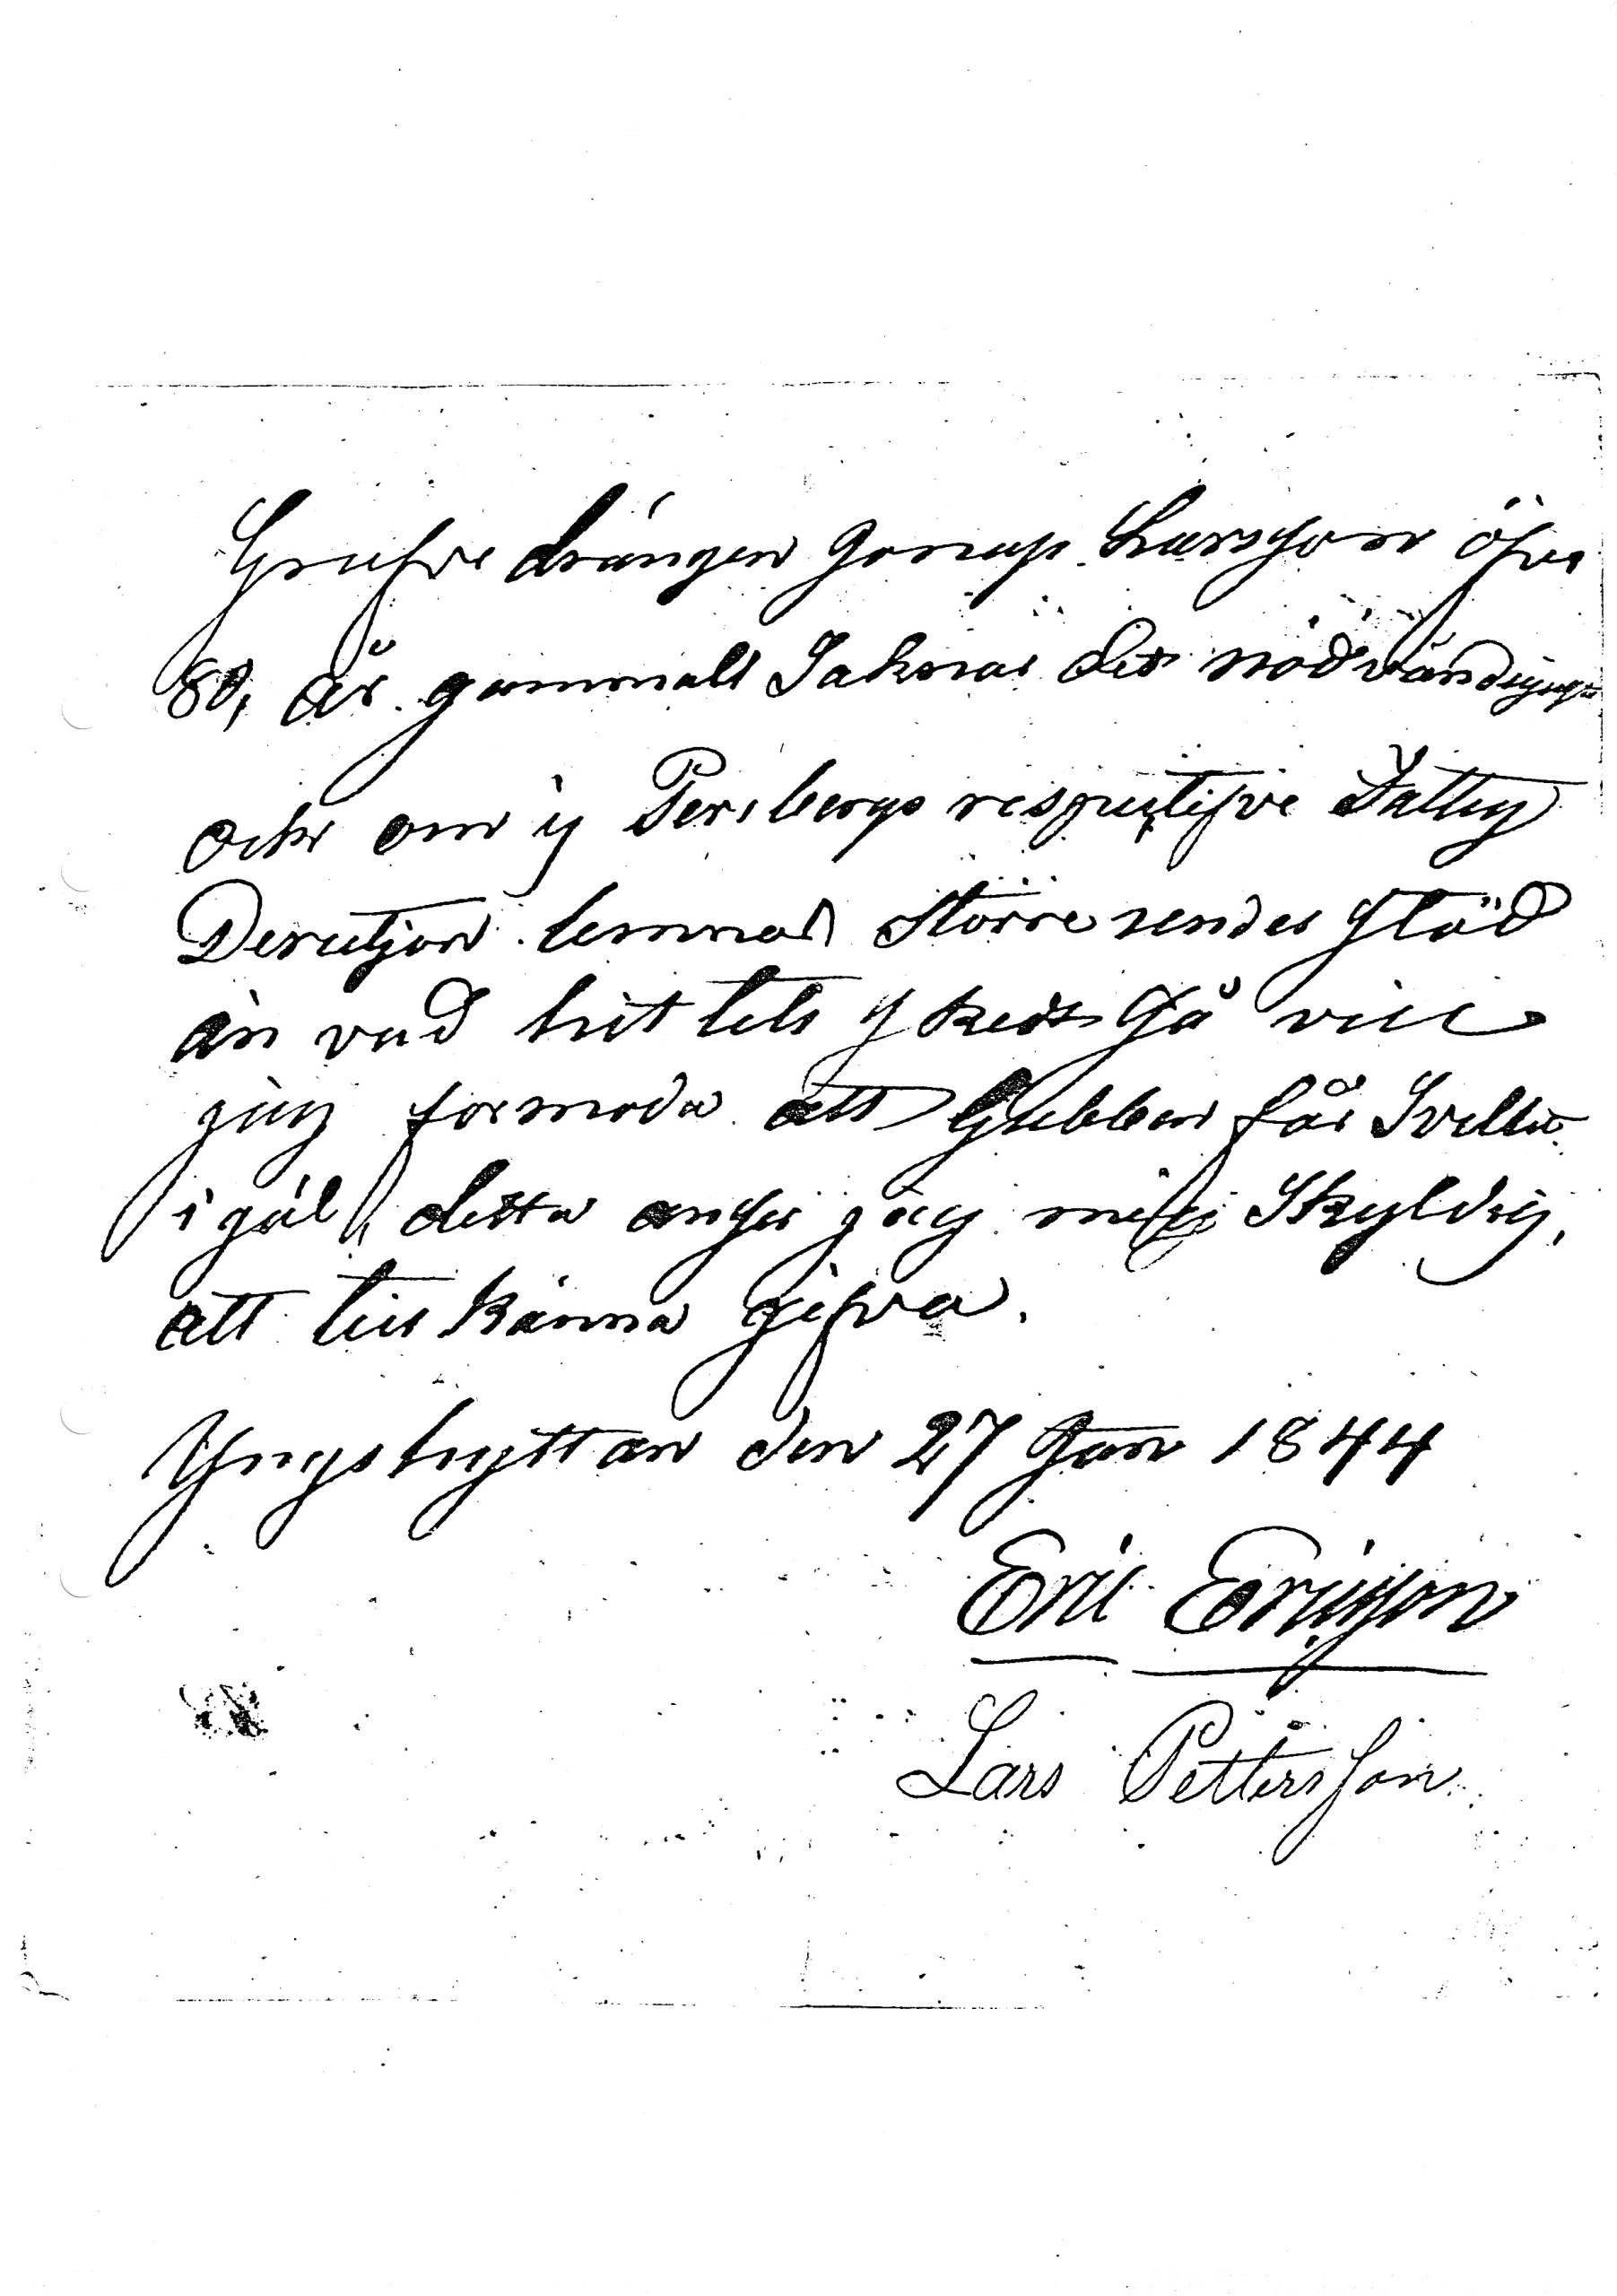 Grufve drängen Jonas Larsson öfver
80, År gammalt Saknar det nödvändigaste
och om ej Persbergs respectifve Fattig
Derectjon lemnar Större rendes stöd
än vad hit tels skett Så vill
jag formoda att Gubben får Svälta
i gäl, detta anser jag mig Skyldig,
att till känna gifva.
Yngshyttan den 27 Jan 1844
Eric Ericsson
Lars Pettersson